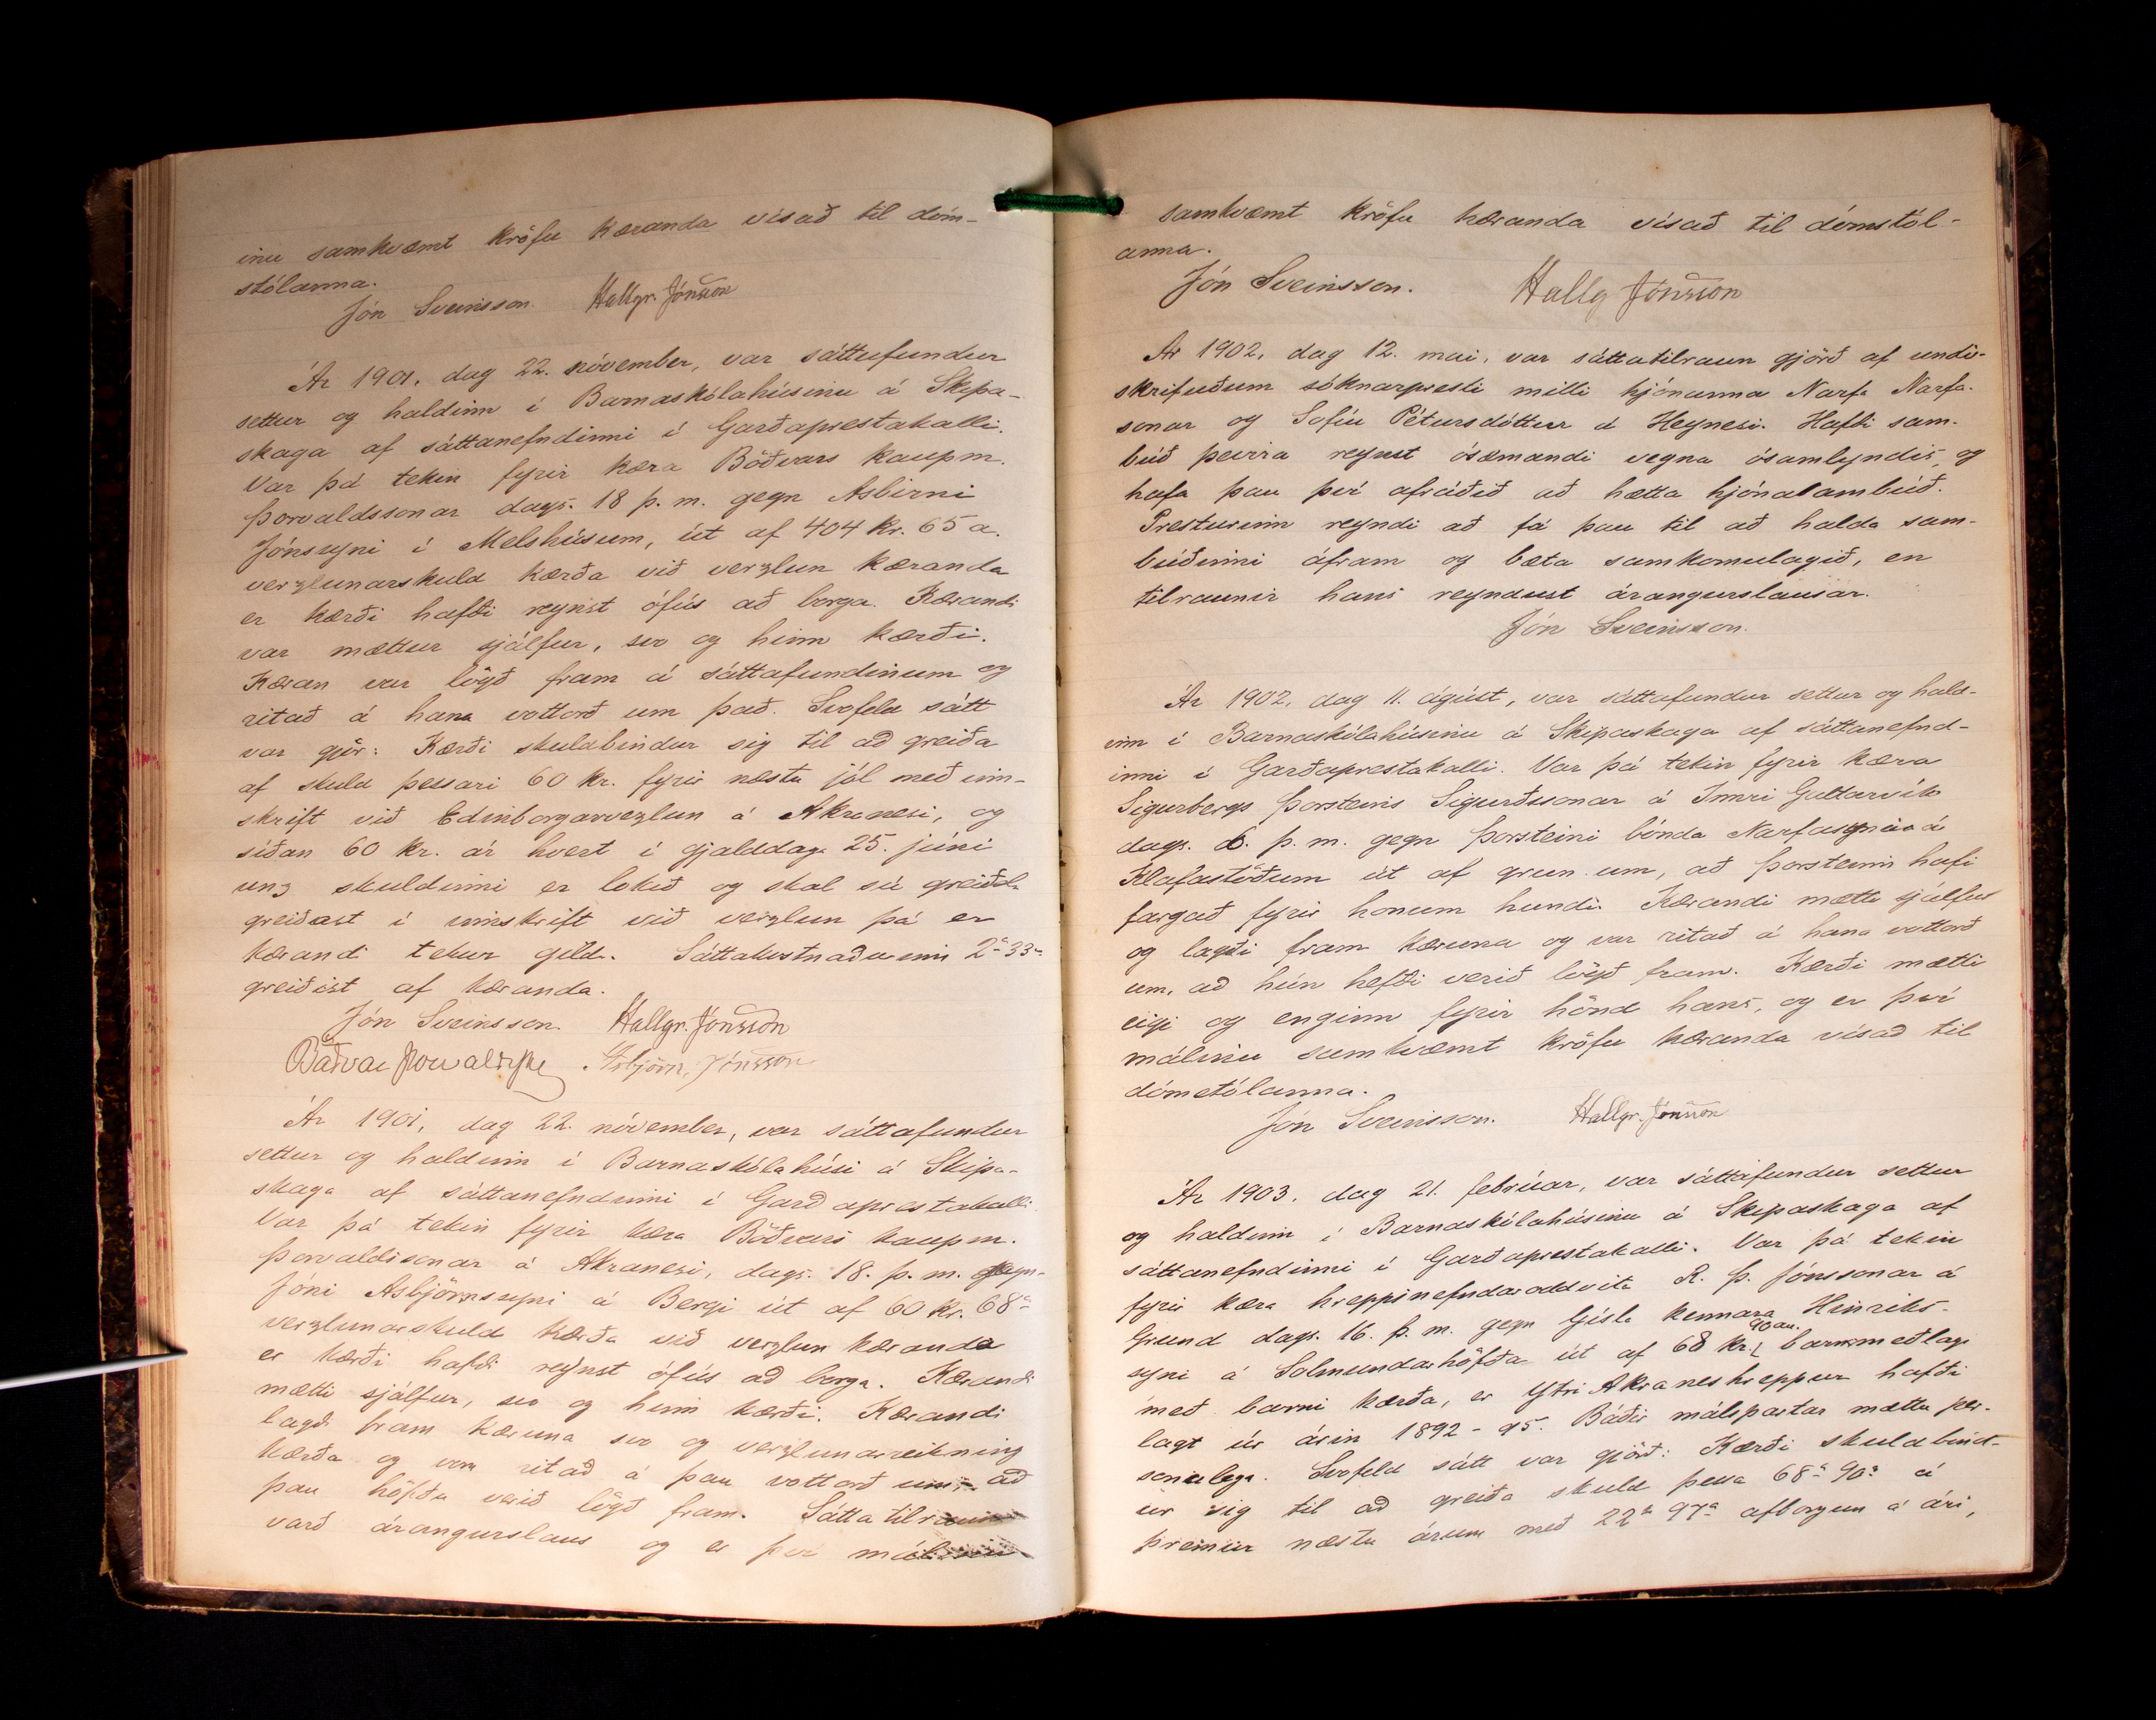 inu samkvæmt kröfu kæranda vísað til dóm-
stólanna.
Jón Sveinsson. Hallgr. Jónsson
Ár 1901, dag 22. nóvember, var sáttufundur
settur og haldinn í Barnaskólahúsinu á Skipa-
skaga af sáttanefndinni í Garðaprestakalli.
Var þá tekin fyrir kæra Böðvars kaupm.
Þorvaldssonar dags. 18 þ. m. gegn Asbirni
Jónssyni í Melshúsum, út af 404 kr. 65 a.
verzlunarskuld kærða við verzlun kæranda
er kærði hafði reynst ófús að borga. Kærandi
var mættur sjálfur, svo og hinn kærði.
Kæran var lögð fram á sáttafundinum og
ritað á hana vottorð um það. Svofeld sátt
var gjör: Kærði skuldbindur sig til að greiða
af skuld þessari 60 kr. fyrir næstu jól með inn-
skrift við Edinborgarverzlun á Akranesi, og
síðan 60 kr. ár hvert í gjalddaga 25. júní
unz skuldinni er lokið og skal sú
greiðast í innskrift við verzlun þá er
kærandi tekur gild. Sáttakostnaðurinn 2 kr 33 a
greiðist af kæranda.
Jón Sveinsson. Hallgr. Jónsson
Böðvar Þorvaldsson Asbjörn Jónsson
Ár 1901, dag 22. nóvember, var sáttafundur
settur og haldinn í Barnaskólahúsi á Skipa-
skaga af sáttanefndinni í Garðaprestakalli.
Var þá tekin fyrir kæra Böðvars kaupm.
Þorvaldssonar á Akranesi, dags. 18. þ. m. gegn
Jóni Asbjörnssyni á Bergi út af 60 kr. 68 a
verzlunarskuld kærða við verzlun kæranda
er kærði hafði reynst ófús að borga. Kærandi
mætti sjálfur, svo og hinn kærði. Kærandi
lagði fram kæruna svo og verzlunarreikning
kærða og var ritað á þau vottorð um, að
þau höfðu verið lögð fram. Sáttatilraun
varð árangurslaus og er því málinu
samkvæmt kröfu kæranda vísað til dómstól-
anna.
Jón Sveinsson. Hallg Jónsson
Ár 1902, dag 12. mai, var sáttatilraun gjörð af undir-
skrifuðum sóknarpresti milli hjónanna Narfa Narfa-
sonar og Sofíu Pétursdóttur á Heynesi. Hafði sam-
búð þeirra reynst ósæmandi vegna ósamlyndis, og
hafa þau því afráðið að hætta hjónasambúð.
Presturinn reyndi að fá þau til að halda sam-
búðinni áfram og bæta samkomulagið, en
tilraunir hans reyndust árangurslausar.
Jón Sveinsson.
Ár 1902, dag 11. ágúst, var sáttafundur settur og hald-
inn í Barnaskólahúsinu á Skipaskaga af sáttanefnd-
inni í Garðaprestakalli. Var þá tekin fyrir kæra
Sigurbergs Þorsteins Sigurðssonar á Innri Galtarvík
dags. 6. þ. m. gegn Þorsteini bónda Narfasyni á
Klafastöðum út af grun um, að Þorsteinn hafi
fargað fyrir honum hundi. Kærandi mætti sjálfur
og lagði fram kæruna og var ritað á hana vottorð
um, að hún hefði verið lögð fram. Kærði mætti
eigi og enginn fyrir hönd hans, og er því
málinu samkvæmt kröfu kæranda vísað til
dómstólanna.
Jón Sveinsson. Hallgr. Jónsson
Ár 1903, dag 21. febrúar, var sáttafundur settur
og haldinn í Barnaskólahúsinu á Skipaskaga af
sáttanefndinni í Garðaprestakalli. Var þá tekin
fyrir kæra hreppsnefndaroddvita R. Þ. Jónssonar á
Grund dags. 16. þ. m. gegn Gísla kennara Hinriks-
syni á Sólmundarhöfða út af 68 kr. 90 au. barnsmeðlagi
með barni kærða, er Ytri Akraneshreppur hafði
lagt út árin 1892-95. Báðir málspartar mættu per-
sónulega. Svofeld sátt var gjörð: Kærði skuldbind-
ur sig til að greiða skuld þessa 68 kr 90 a á
þremur næstu árum með 22 kr 97 a afborgun á ári,